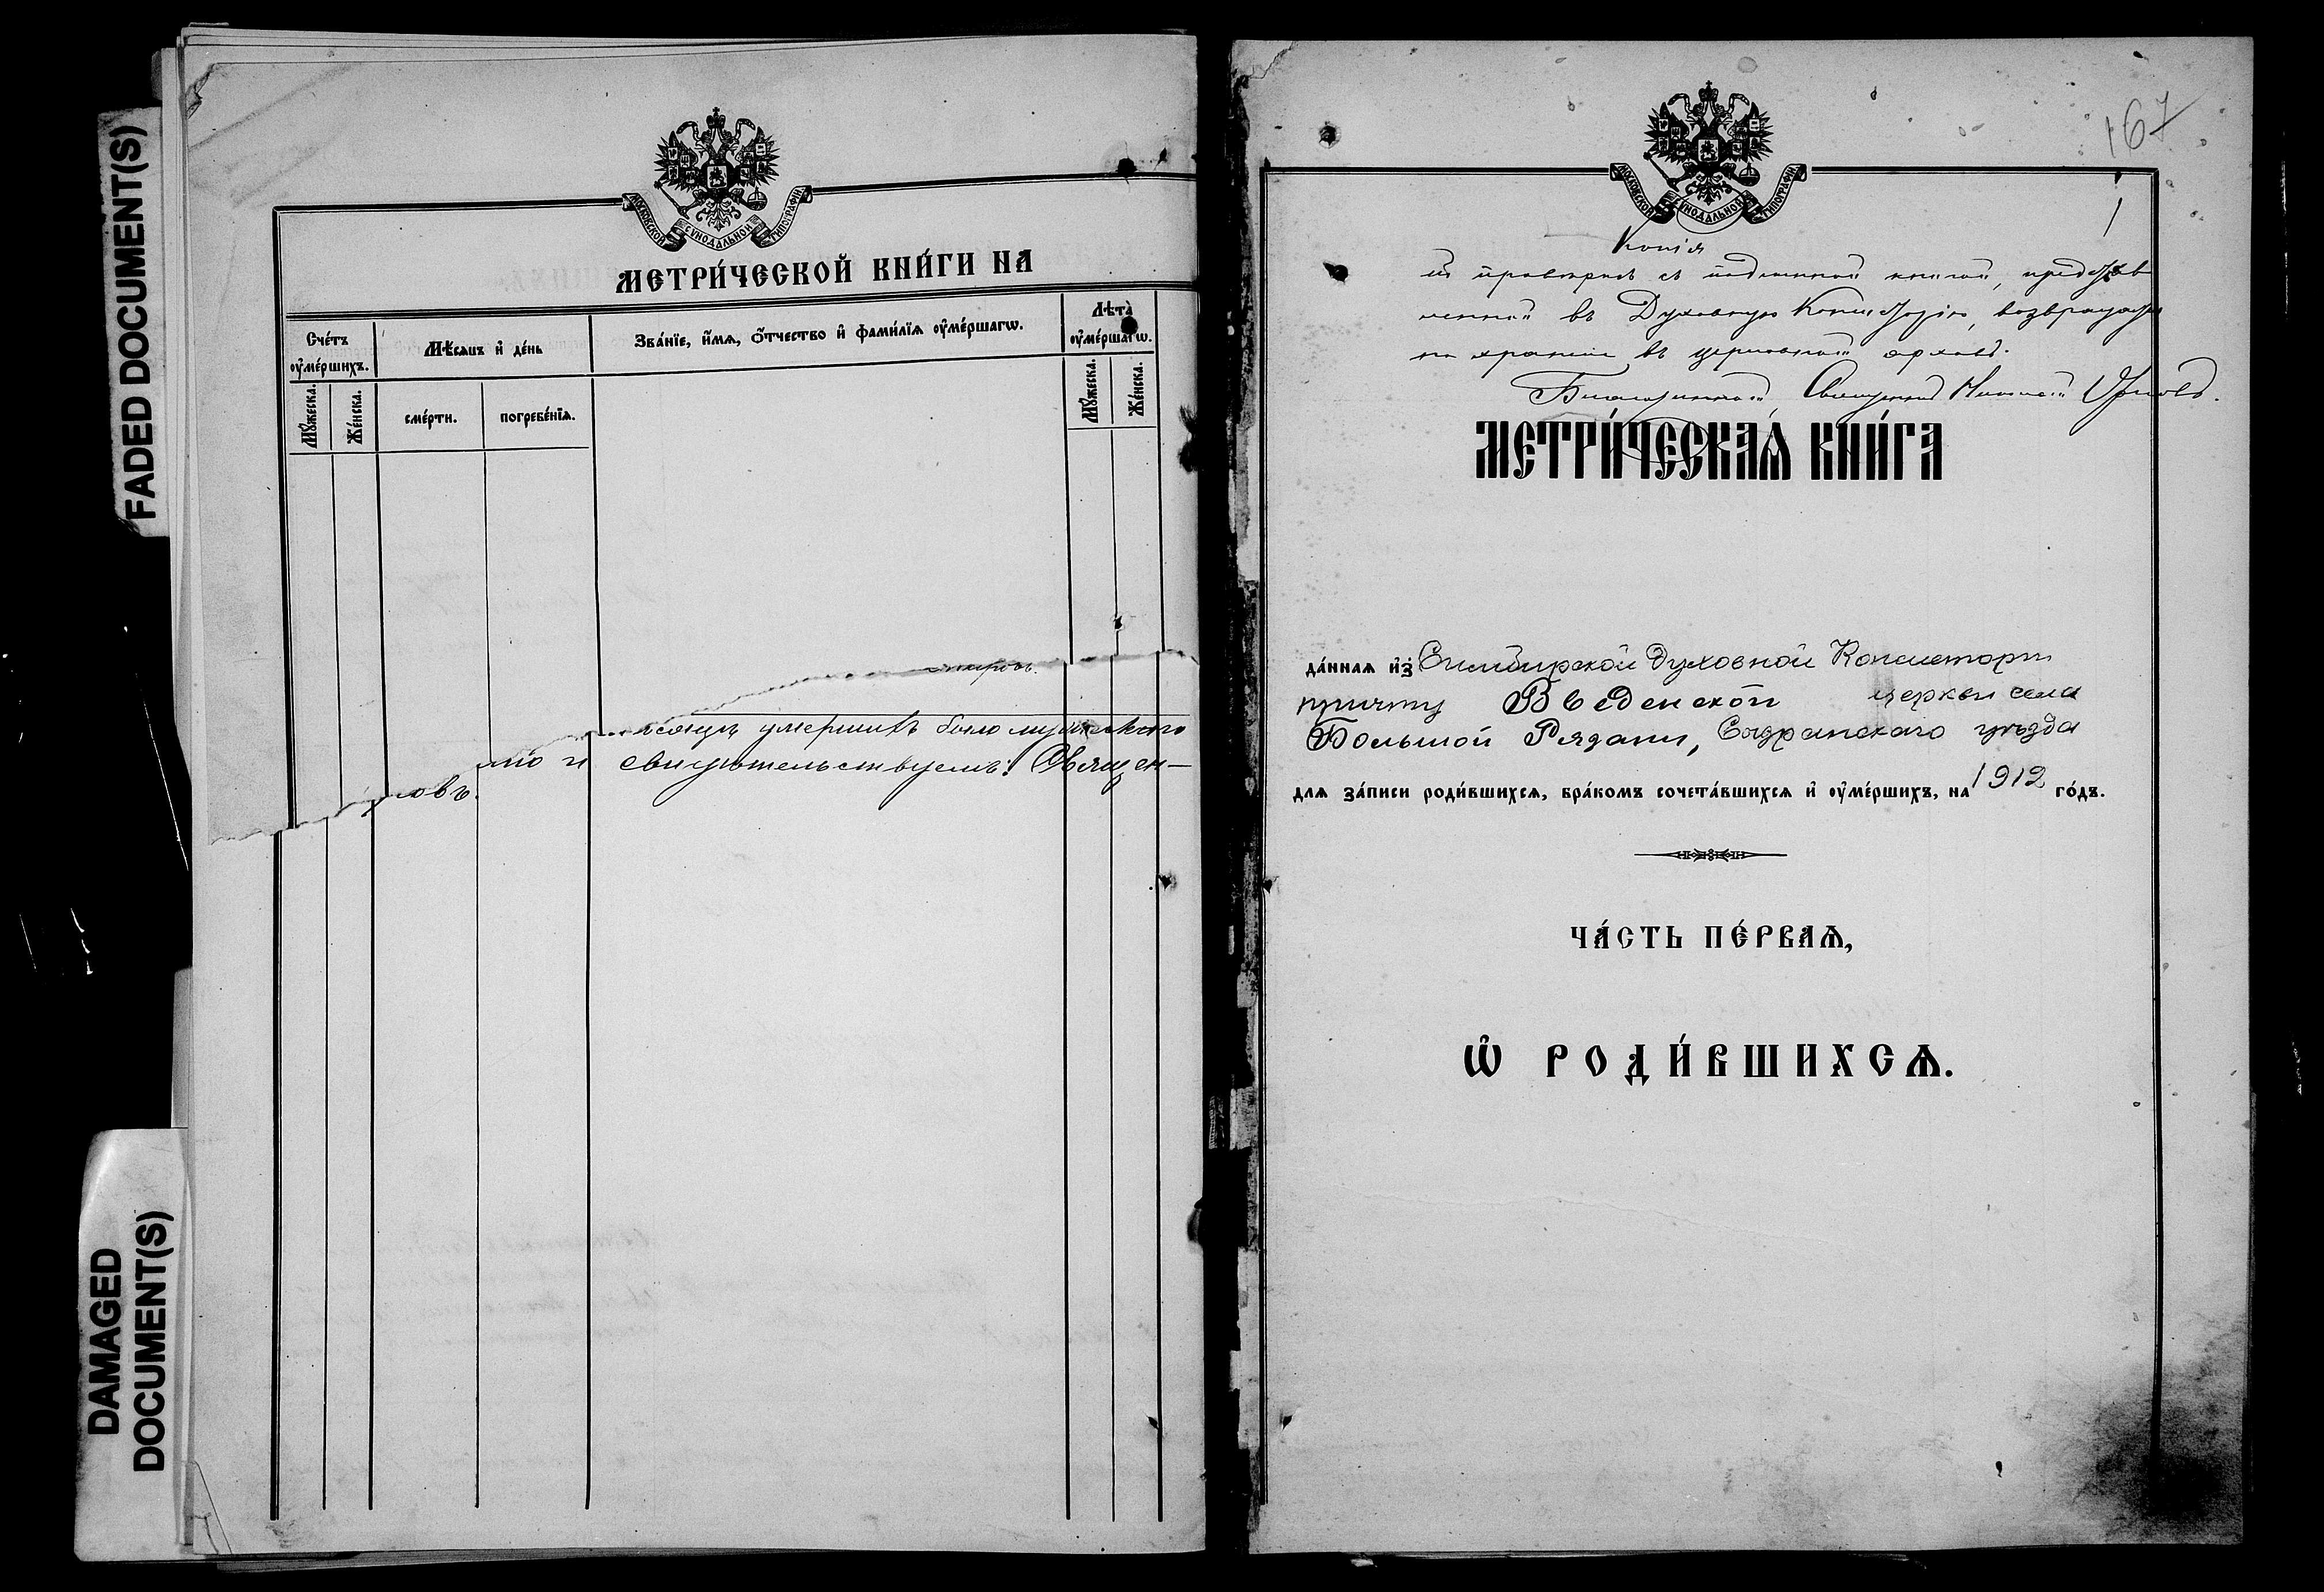 FADED DOCUMENT(S)
DAMAGED
DOCUMENT(S)
МОСКОВСКОЙ СѴНОДАЛЬНОЙ ТИПОГРАФІИ
МЕТРИ́ЧЕСКОЙ КНИ́ГИ НА
Сче́тъ
ᲂу҆ме́ршихъ.
Мꙋ́жеска.
Же́нска.
Мѣ́сяцъ и҆ де́нь
сме́рти.
погребе́нїѧ.
Зва́нїе, и҆́мѧ, ѻ҆́тчество и҆ фами́лїѧ ᲂу҆ме́ршагѡ.
Лѣ́та
ᲂу҆ме́ршагѡ.
Мꙋ́жеска.
Же́нска.
умершихъ было мужескаго
и свидѣтельствуемъ: Священ-
овъ.
167
1
МОСКОВСКОЙ СѴНОДАЛЬНОЙ ТИПОГРАФІИ
Копія
съ книгой, представ
ленной въ Духовную Консисторію, возвращается
на храненіе въ церковный архивъ.
Благочинный, Священникъ Николай
МЕТРИ́ЧЕСКАѦ КНИ́ГА
да́ннаѧ и҆з̾ Симбирской Духовной Консистори
причту Введенской церкви села
Большой Рязани, Сызранскаго уѣзда
длѧ за́писи роди́вшихсѧ, бра́комъ сочета́вшихсѧ и҆ ᲂу҆ме́ршихъ, на 1912 го́дъ.
ЧА́СТЬ ПЕ́РВАѦ,
Ѡ҆ РОДИ́ВШИХСѦ.